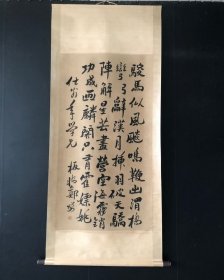 駿馬似風飈鳴鞭出渭橋
彎弓辭漢月插羽破天驕
陣解星芒盡營空海霧銷
功成画麟閣只有霍嫖姚
仕翁年學兄 板橋鄭燮